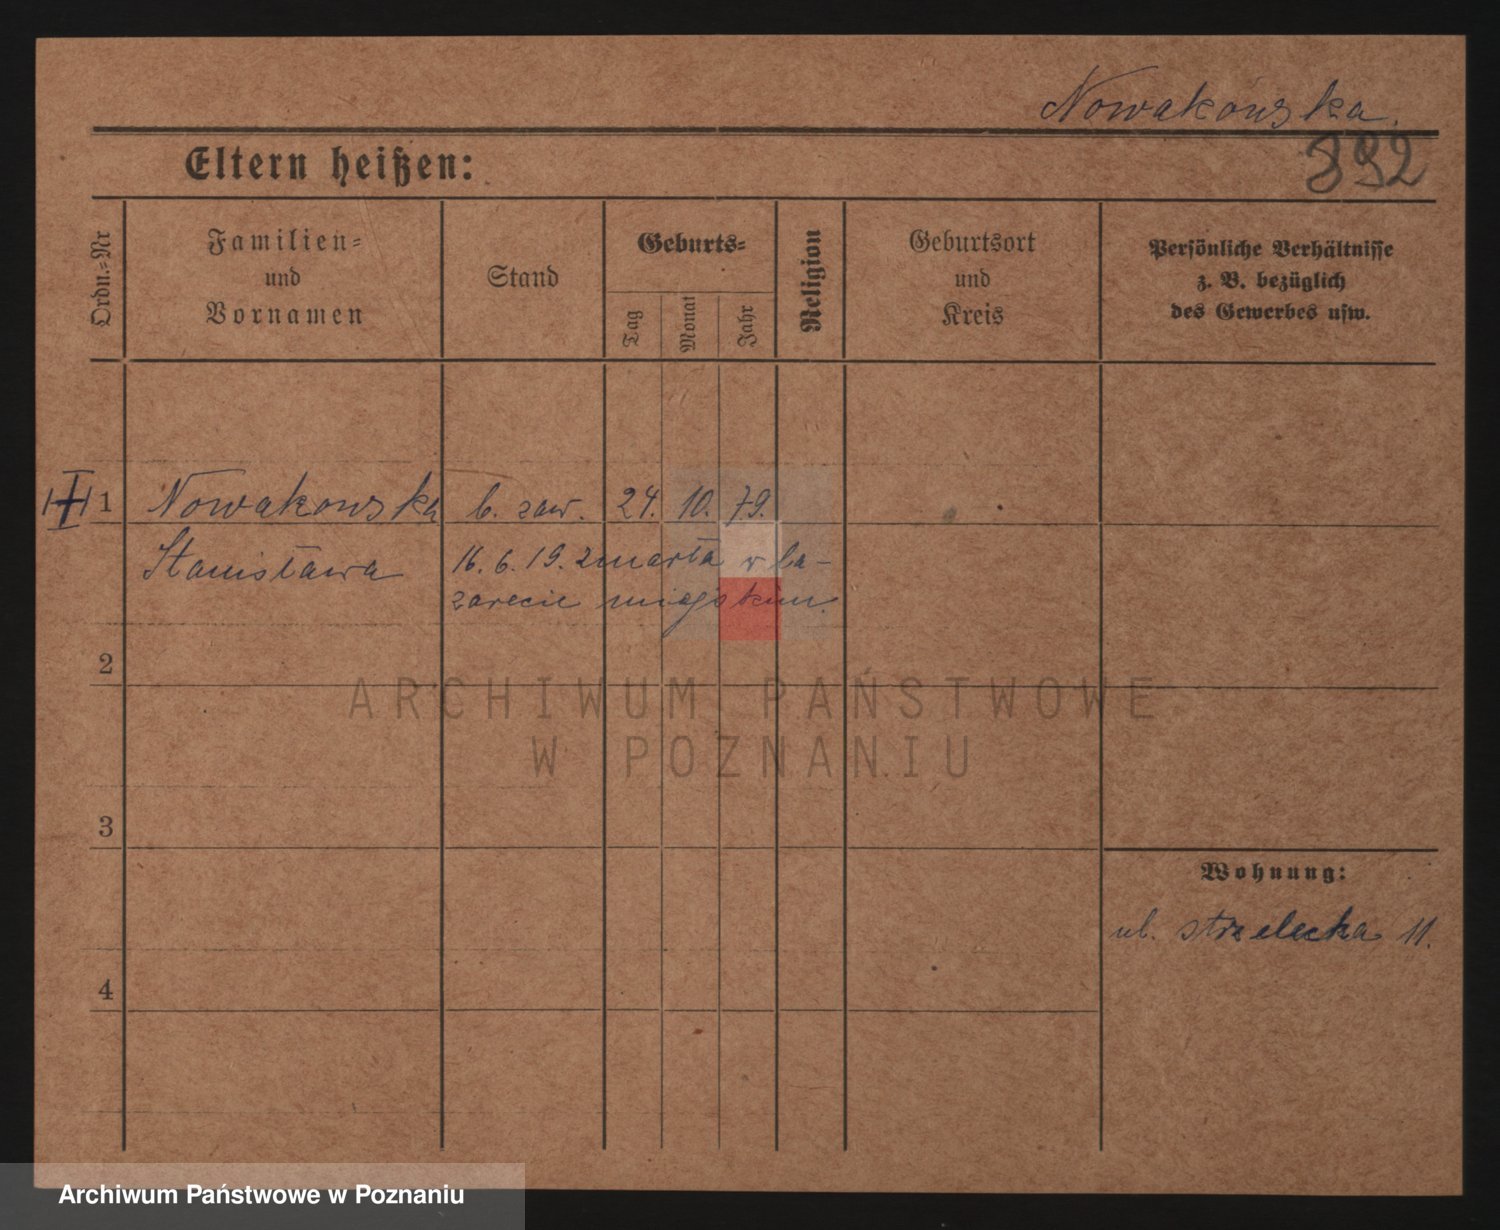 Nowakowska.
892
Eltern heißen:
Ordn.=Nr
Familien=
und
Vornamen
Stand
Geburts=
Tag
Monat
Jahr
Religion
Geburtsort
und
Kreis
Persönliche Verhältnisse
z. B. bezüglich
des Gewerbes usw.
1 Nowakowska b. zaw. 24. 10. 79.
Stanisława 16. 6. 19. zmarła w la-
zarecie miejskim.
2
ARCHIWUM PAŃSTWOWE
W POZNANIU
3
Wohnung:
ul. strzelecka 11.
4
Archiwum Państwowe w Poznaniu